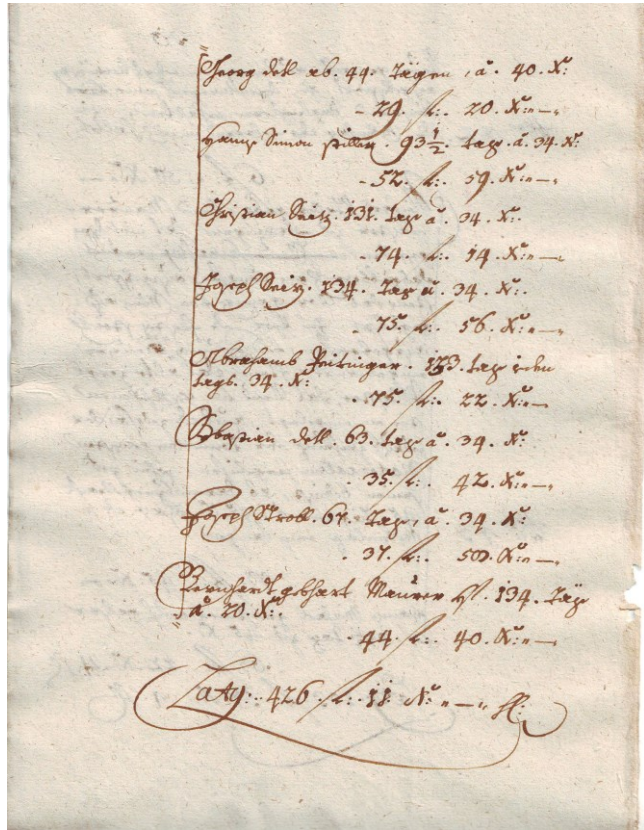 Georg detl ab. 44. Tägen, à. 40. Xr:
- 29. fl:. 20. Xr: „—„
Hannß Simon . 93 1/2 tag à. 34. Xr:
- 52. fl:. 59. Xr: „—„
Christian Seitz. 131. tag à. 34. Xr:
- 74. fl:. 14. Xr: „—„
Joseph Seitz. 134. Tag à. 34. Xr:.
- 75. fl:. 56. Xr: „—„
Abrahamb . 133. tag
tags. 34. X:
- 75. fl:. 22. Xr: „—„
Sebastian detl. 63. tag à. 34. Xr:
- 35. fl:. 42. Xr: „—„
Joseph Strobl. 67. Tag, à. 34. Xr:
- 37. fl:. 58. Xr: „—„
Bernhardt gebhart Maurer . 134. Täg
à. 20. Xr:.
- 44. fl:. 40. Xr: „—„
Latus:. 426. fl:. 11. Xr: „—„